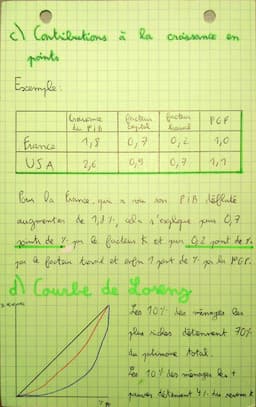 c) Contributions à la croissance en
points
Exemple:
Croissance du PIB | facteur capital | facteur travail | PGF
France | 1,8 | 0,7 | 0,2 | 1,0
USA | 2,6 | 0,9 | 0,7 | 1,1
Pour la France, qui a vu son PIB déflaté
augmenter de 1,8%, cela s'explique par 0,7
points de % par le facteur K et par 0,2 point de %
par le facteur travail et enfin 1 point de % par la PGF.
d) Courbe de Lorenz
Les 10% des ménages les
plus riches détiennent 70%
du patrimoine total.
Les 10% des ménages les +
pauvres détiennent 4% des revenus